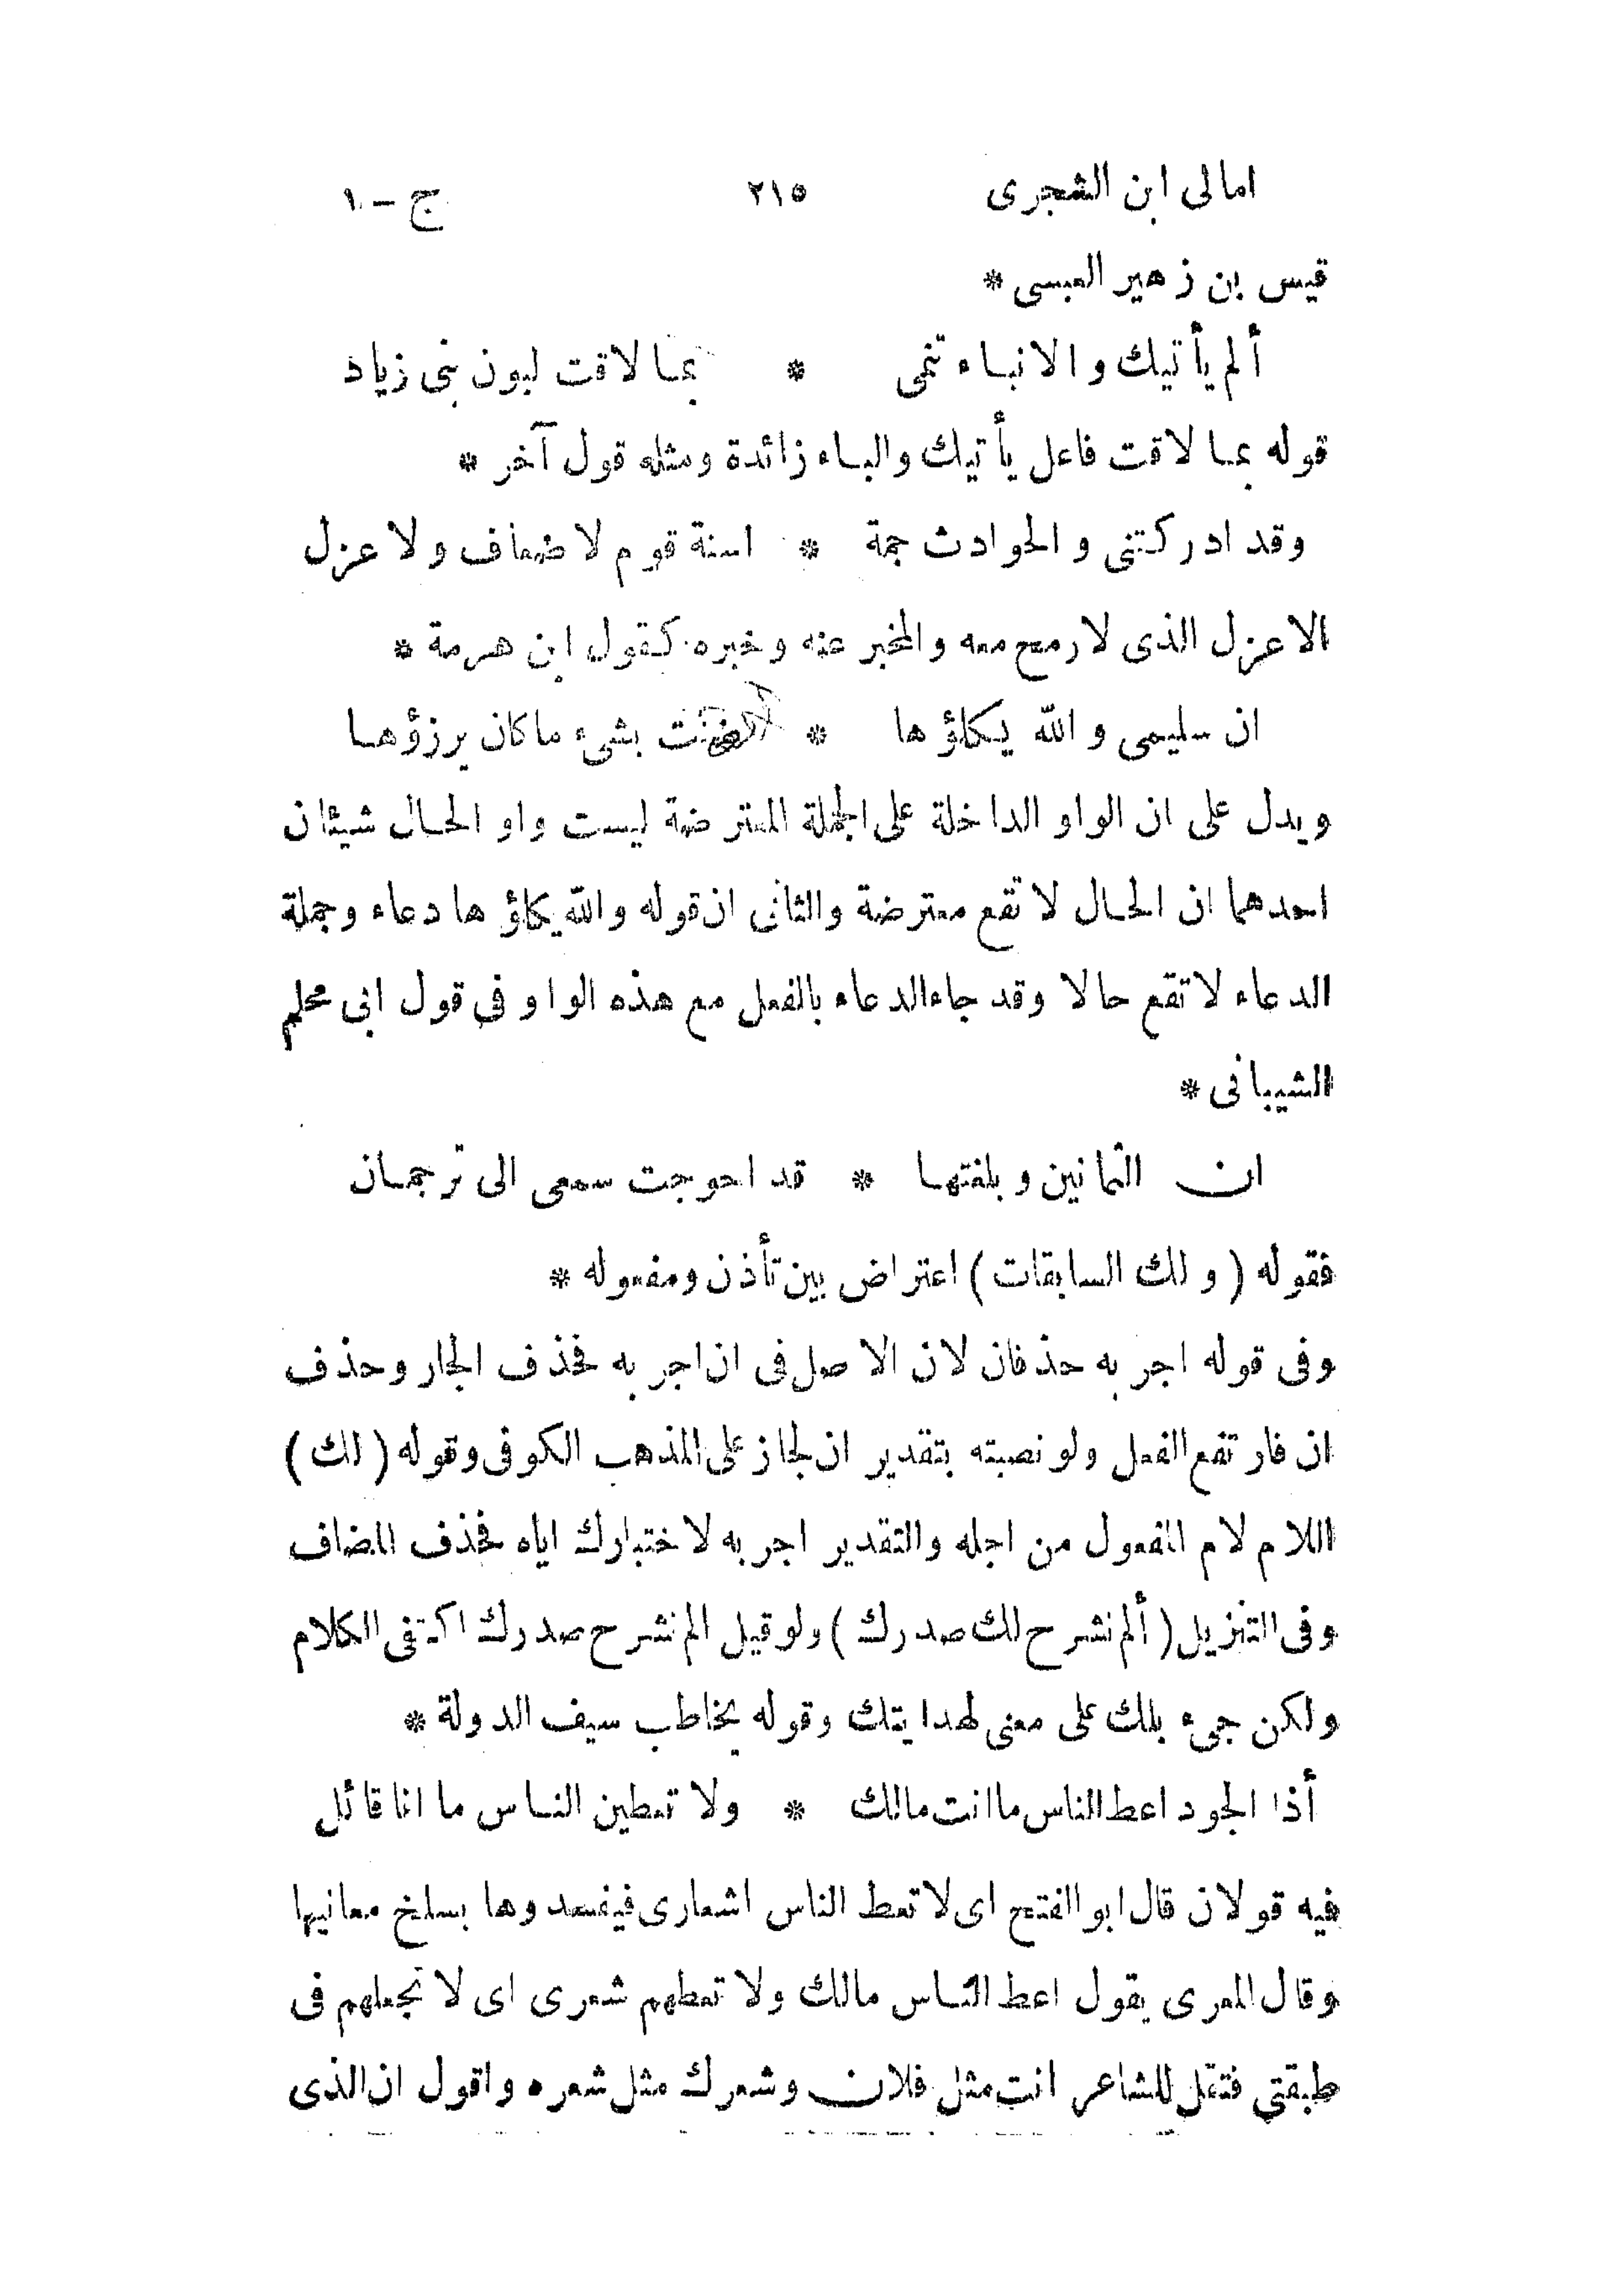 امالى ابن الشجرى ٢١٥ ج – ١
قيس بن زهير العبسى *
ألم يأتيك والانباء تنمى * بما لاقت لبون بنى زياد
قوله بما لاقت فاعل يأتيك والباء زائدة ومثله قول آخر *
وقد ادركتنى والحوادث جمة * اسنة قوم لا ضعاف ولا عزل
الاعزل الذى لا رمح معه والمخبر عنه وخبره كقول ابن هرمة *
ان سليمى والله يكلؤها * ضنت بشىء ما كان يرزؤها
ويدل على ان الواو الداخلة على الجملة المعترضة ليست واو الحال شيئان
احدهما ان الحال لا تقع معترضة والثانى ان قوله والله يكلؤها دعاء وجملة
الدعاء لا تقع حالا وقد جاء الدعاء بالفعل مع هذه الواو فى قول ابى محلم
الشيبانى *
ان الثمانين وبلغتها * قد احوجت سمعى الى ترجمان
فقوله (ولك السابقات) اعتراض بين تأذن ومفعوله *
وفى قوله اجر به حذفان لان الاصل فى ان اجر به فحذف الجار وحذف
ان فارتفع الفعل ولو نصبته بتقدير ان لجاز على المذهب الكوفى وقوله (لك)
اللام لام المفعول من اجله والتقدير اجر به لاختبارك اياه فحذف المضاف
وفى التنزيل (ألم نشرح لك صدرك) ولو قيل الم نشرح صدرك اكتفى الكلام
ولكن جىء بلك على معنى لهدايتك وقوله يخاطب سيف الدولة *
أذا الجود اعط الناس ما انت مالك * ولا تعطين الناس ما انا قائل
فيه قولان قال ابو الفتح اى لا تعط الناس اشعارى فيفسدوها بسلخ معانيها
وقال المعرى يقول اعط الناس مالك ولا تعطهم شعرى اى لا تجعلهم فى
طبقتى فتقل للشاعر انت مثل فلان وشعرك مثل شعره واقول ان الذى